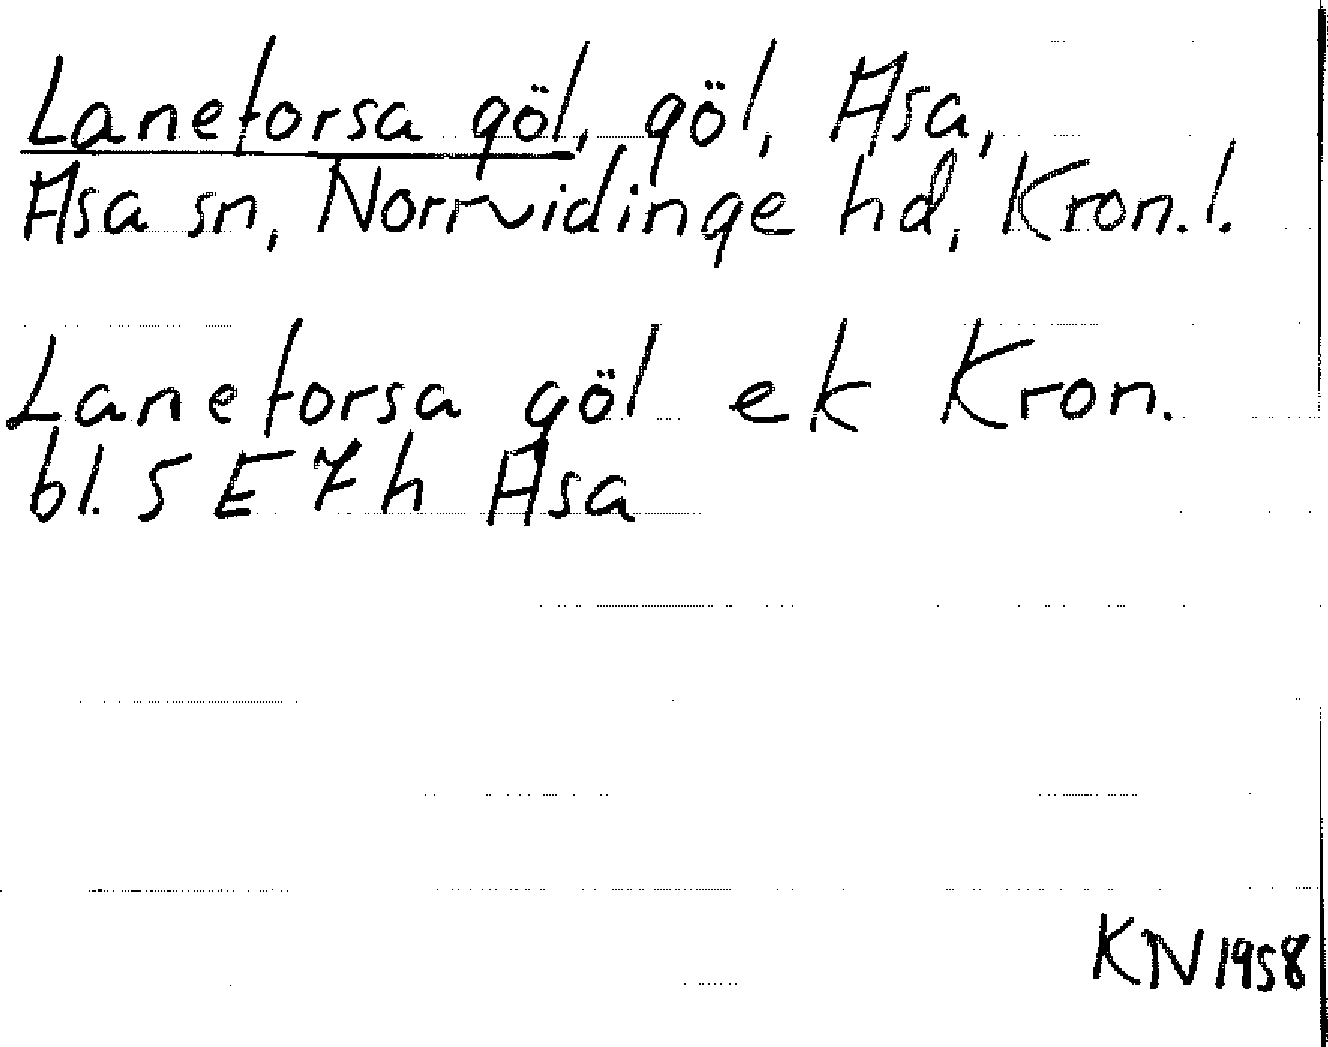 Lanetorsa göl, göl, Asa,
Asa sn, Norrvidinge hd, Kron. l.
Lanetorsa göl ek Kron.
bl. 5 E 7 h Asa
KN 1958